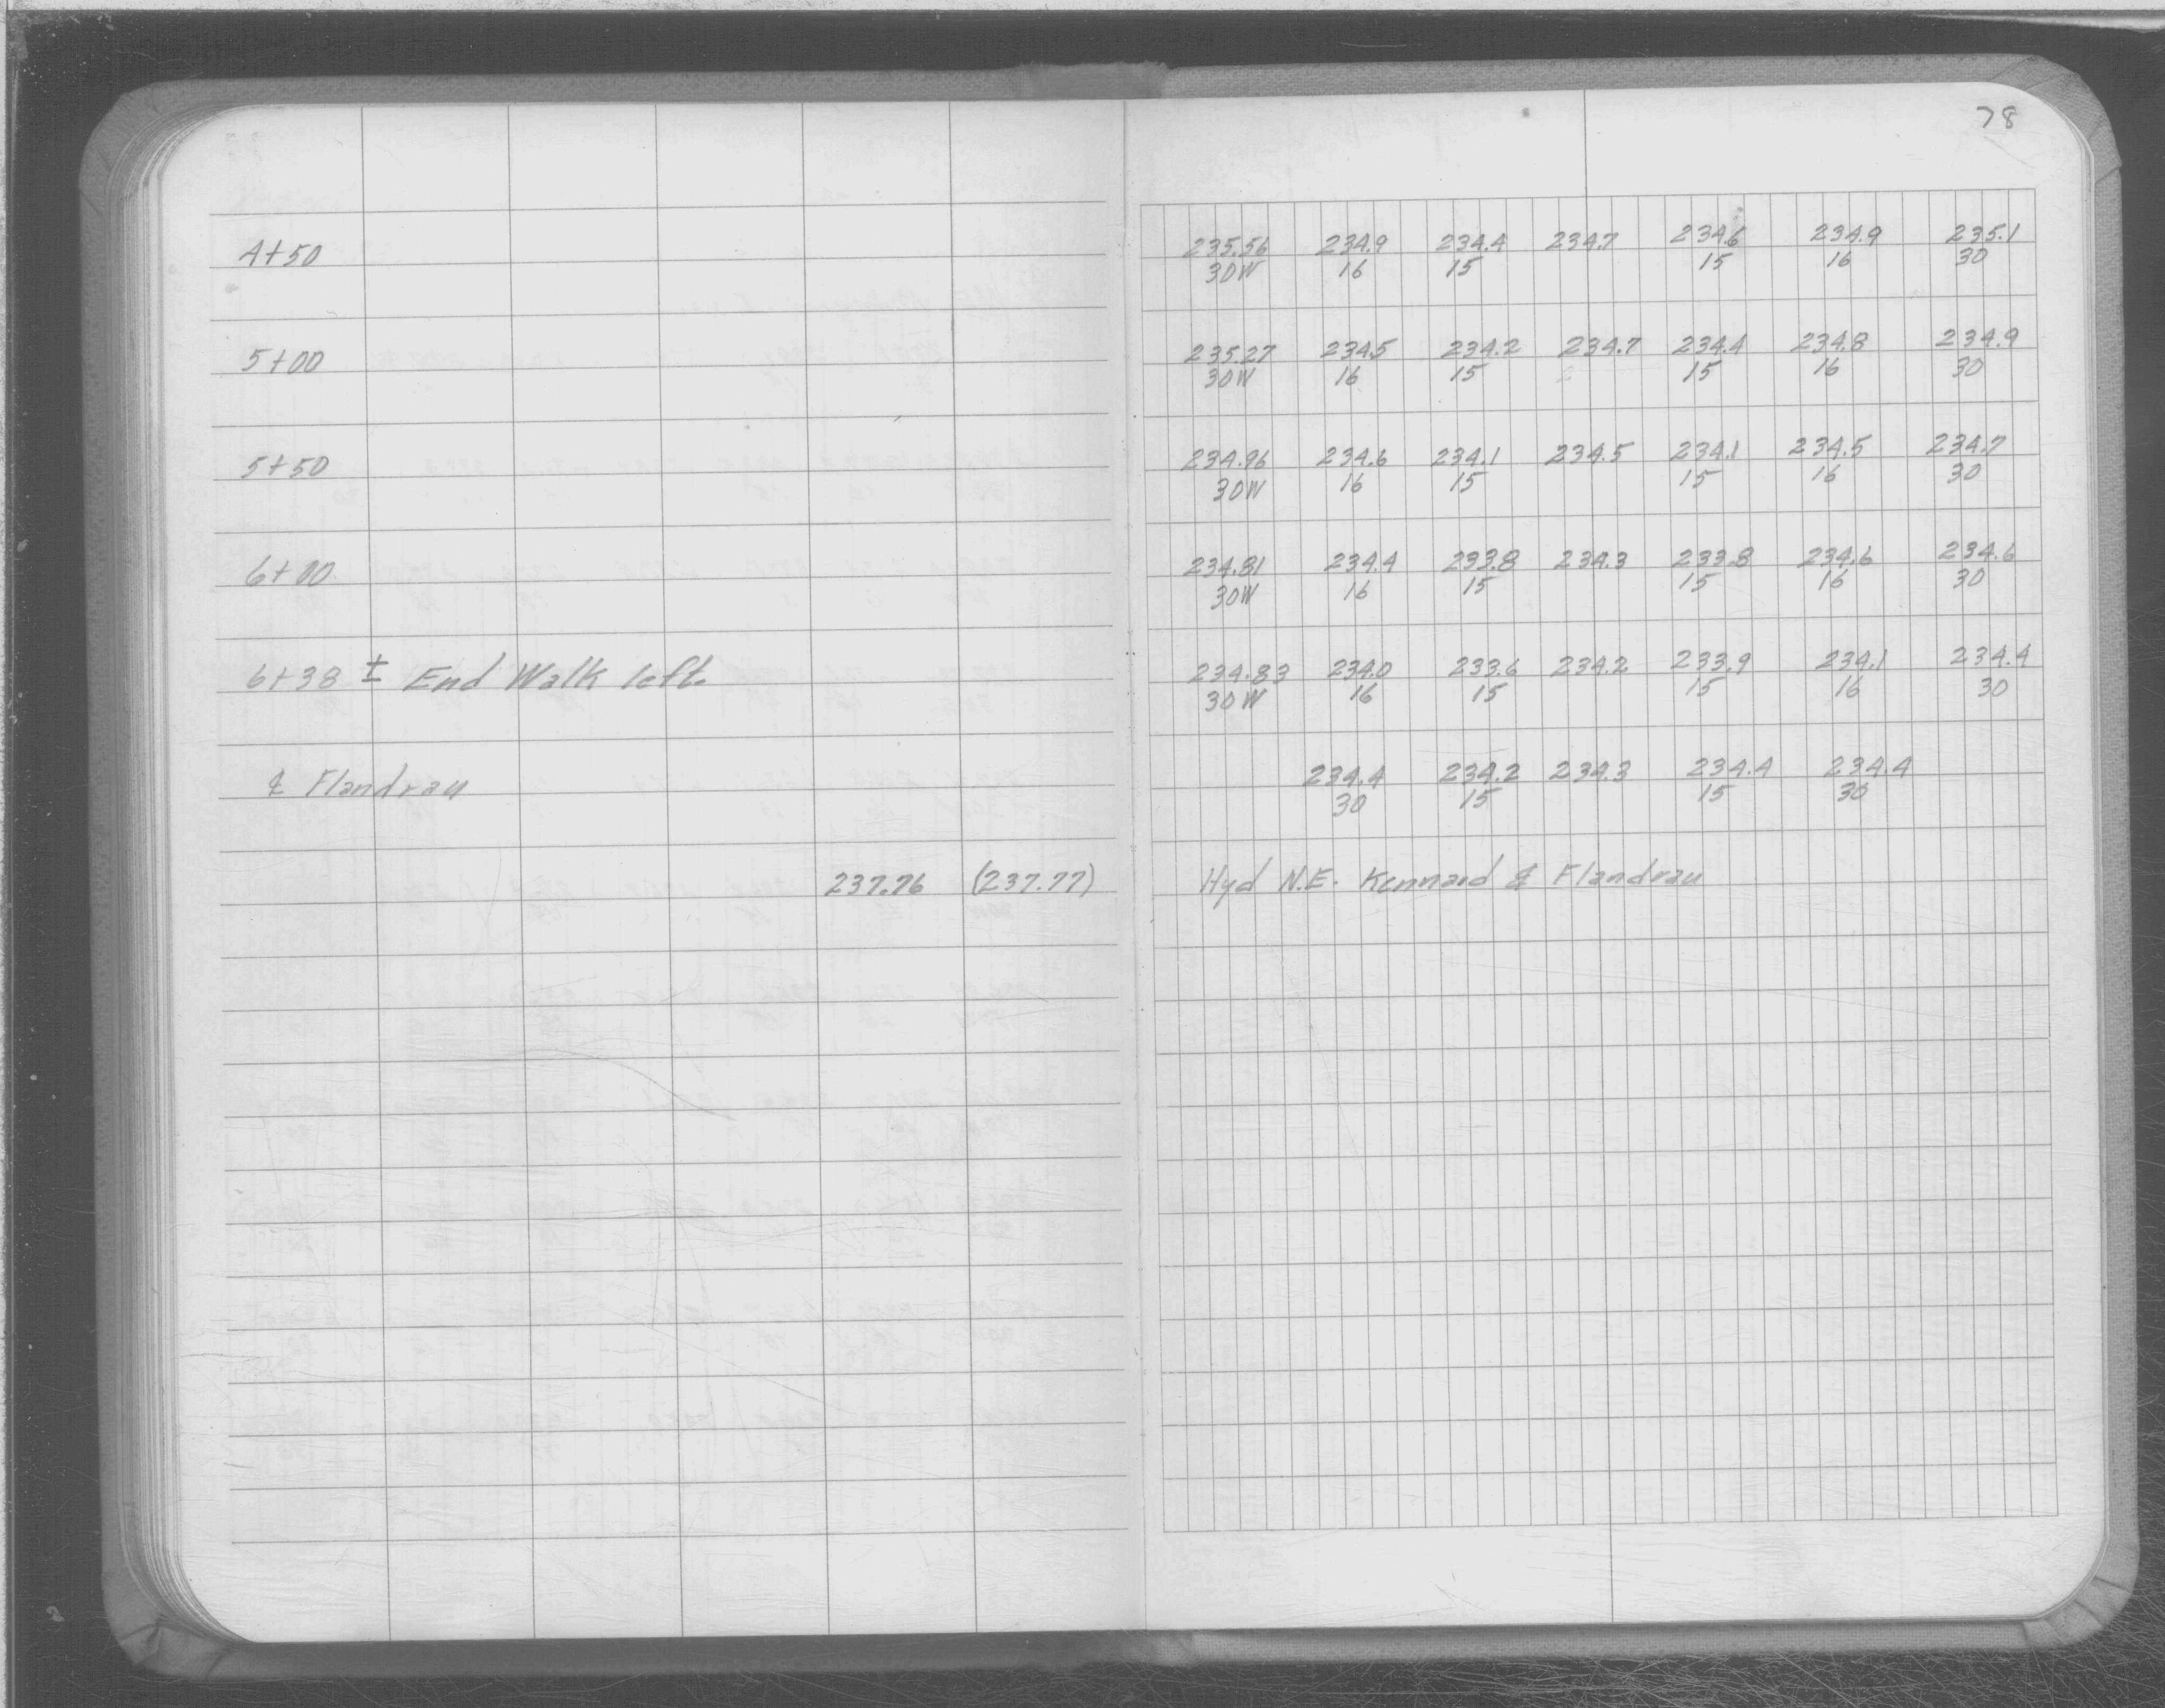 78
4+50 235.56 234.9 234.4 234.7 234.6 234.9 235.1
30W 16 15 15 16 30
5+00 235.27 234.5 234.2 234.7 234.4 234.8 234.9
30W 16 15 15 16 30
5+50 234.96 234.6 234.1 234.5 234.1 234.5 234.7
30W 16 15 15 16 30
6+00 234.81 234.4 233.8 234.3 233.8 234.6 234.6
30W 16 15 15 16 30
6+38 ± End Walk left. 234.83 234.0 233.6 234.2 233.9 234.1 234.4
30W 16 15 15 16 30
₵ Flandrau 234.4 234.2 234.3 234.4 234.4
30 15 15 30
237.76 (237.77) Hyd N.E. Kennard & Flandrau